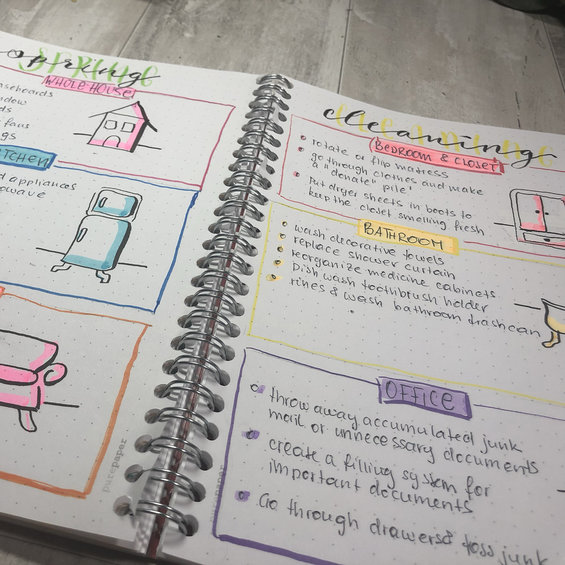 spring
WHOLE HOUSE
baseboards
fans
appliances
cleaning
BEDROOM & CLOSET
rotate or flip matress
go through clothes and make
a "donate" pile
Put dryer sheets in boots to
keep the closet smelling fresh
BATHROOM
wash decorative towels
replace shower curtain
reorganize medicine cabinets
Dish wash toothbrush holder
rines & wash bathroom trashcan
OFFICE
throw away accumulated junk
mail or unnecessary documents
create a filling system for
important documents
Go through drawers & toss junk
purepaper